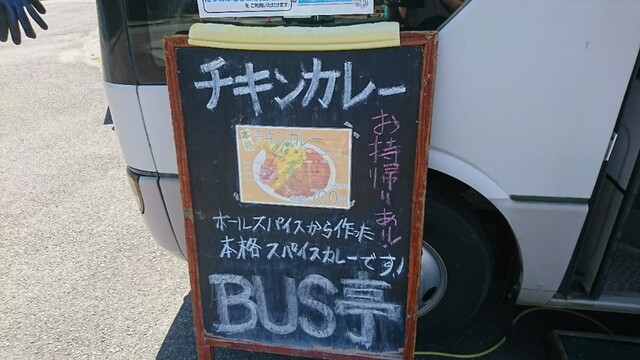 をご利用いただけます。
チキンカレー
お持帰りあり!
本格
チキンカレー
700円
ホールスパイスから作った
本格スパイスカレーです!
BUS亭